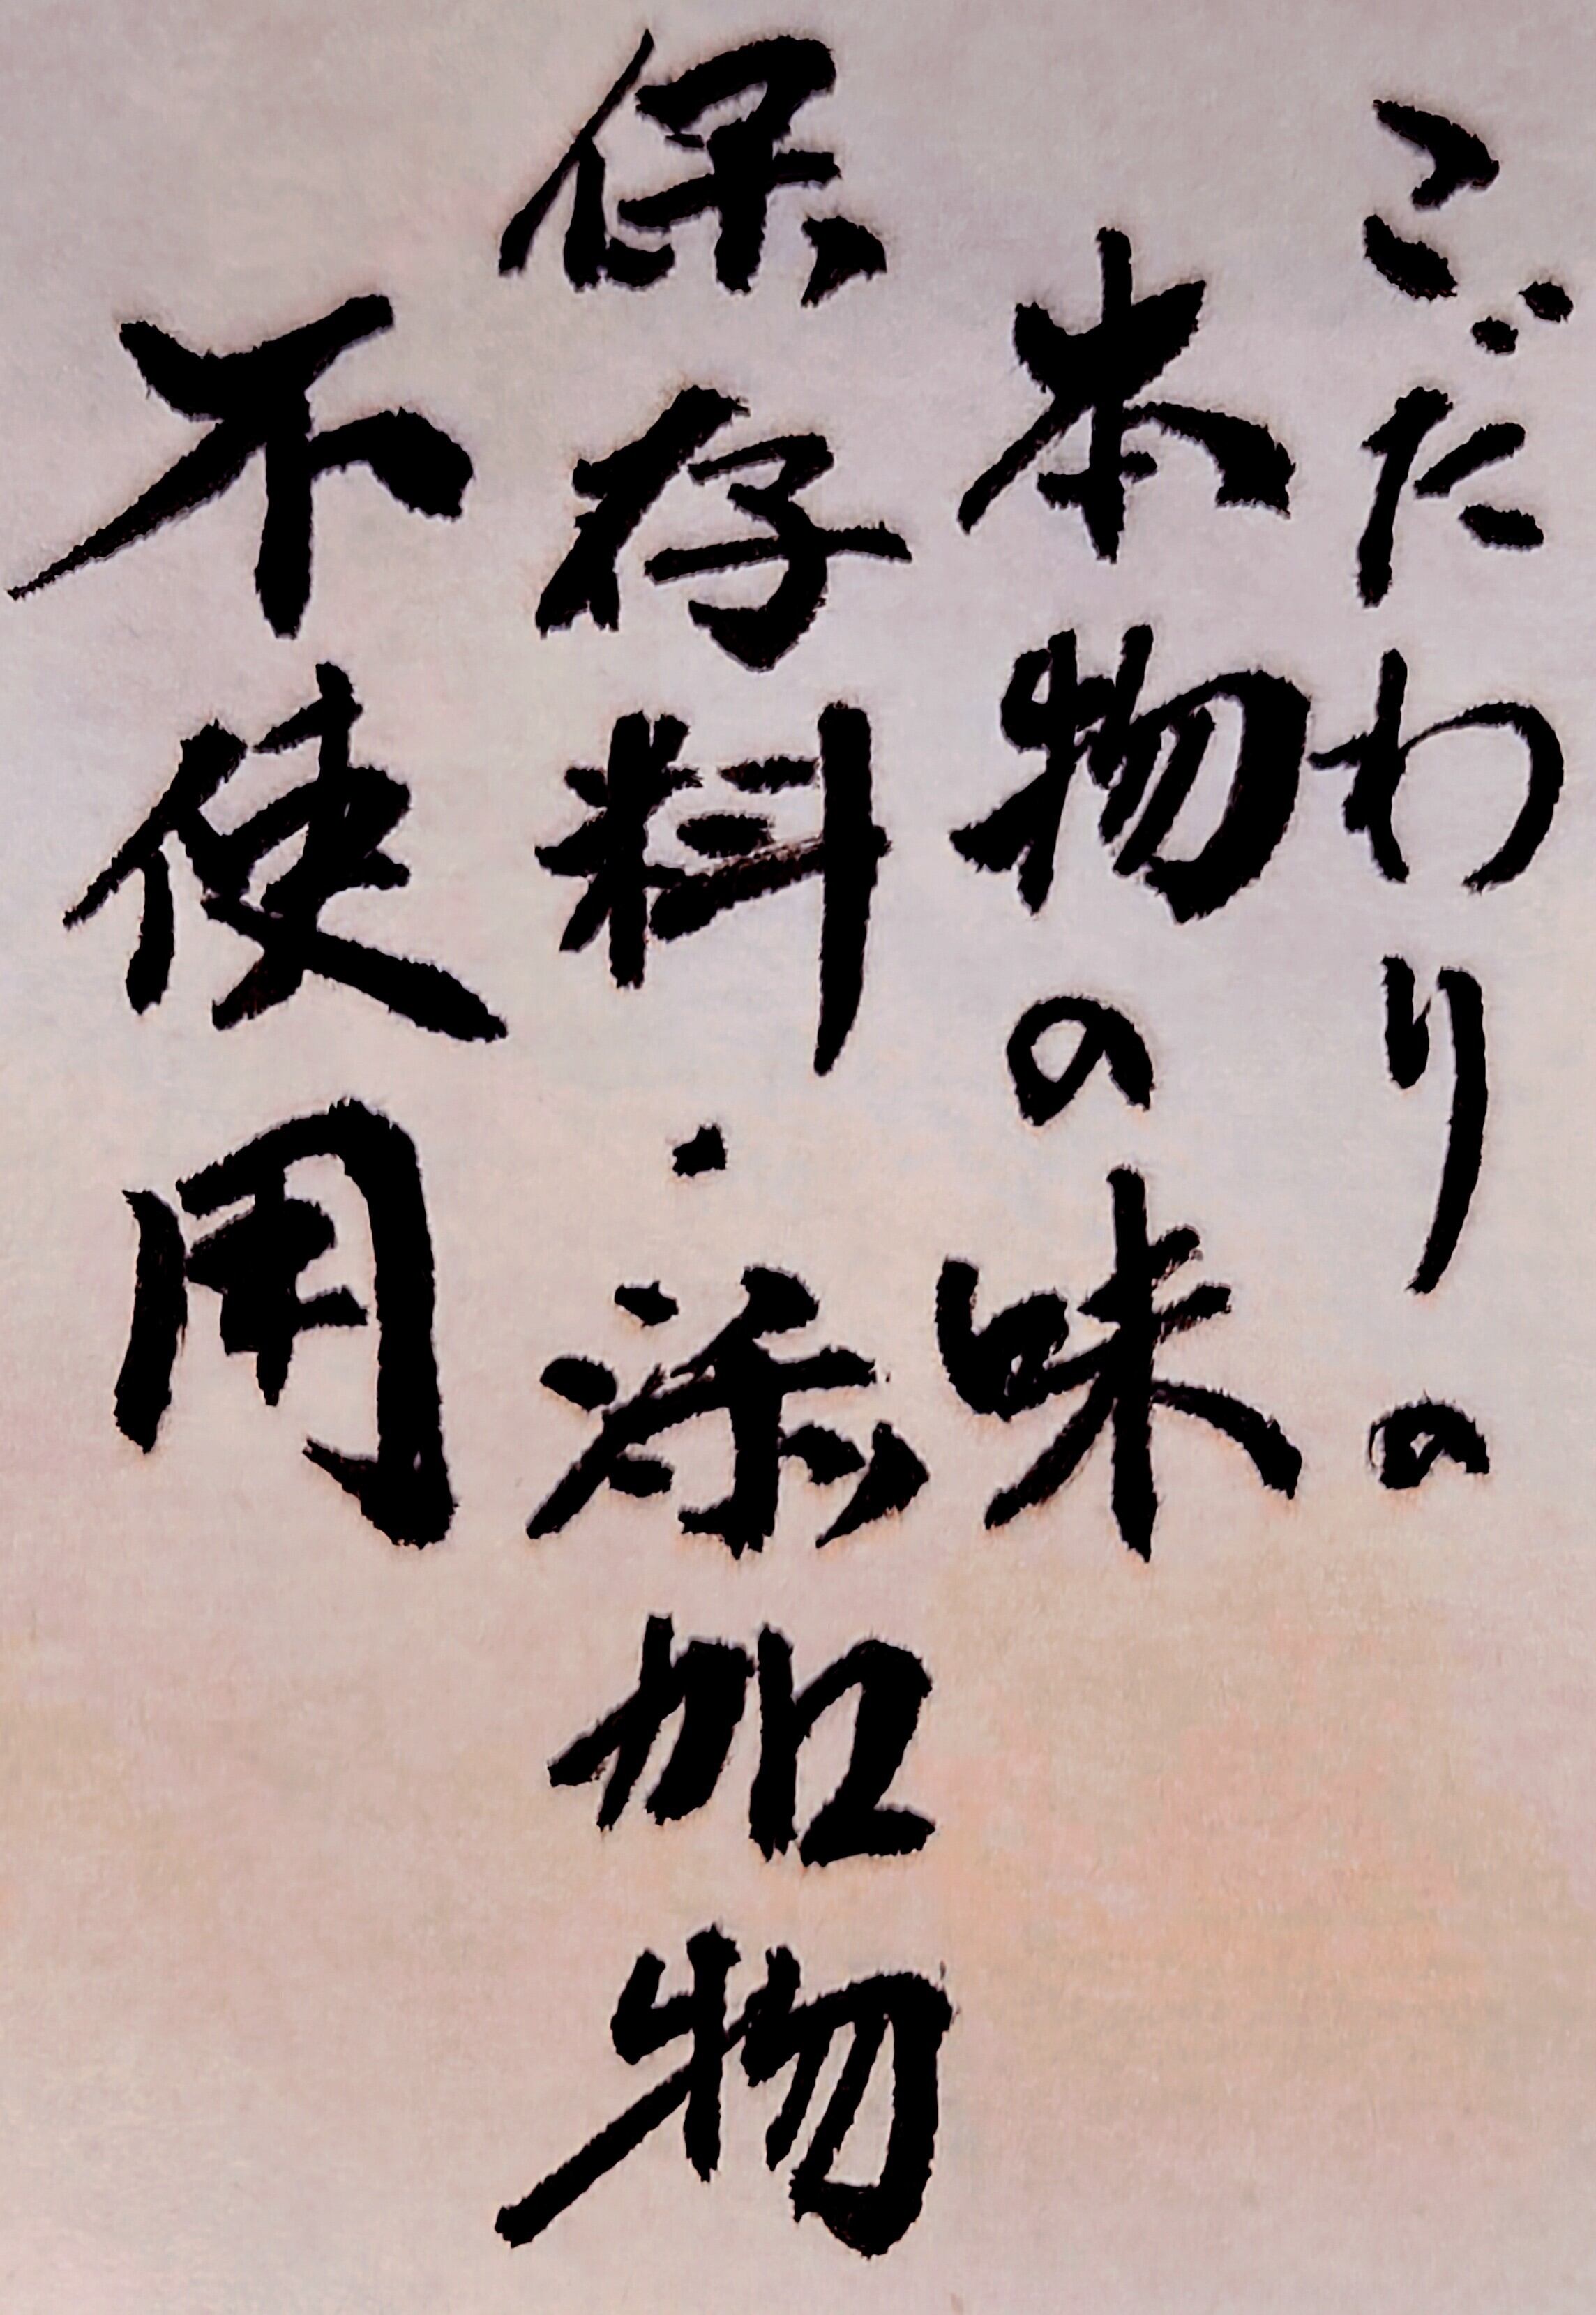 こだわりの
本物の味
保存料・添加物
不使用